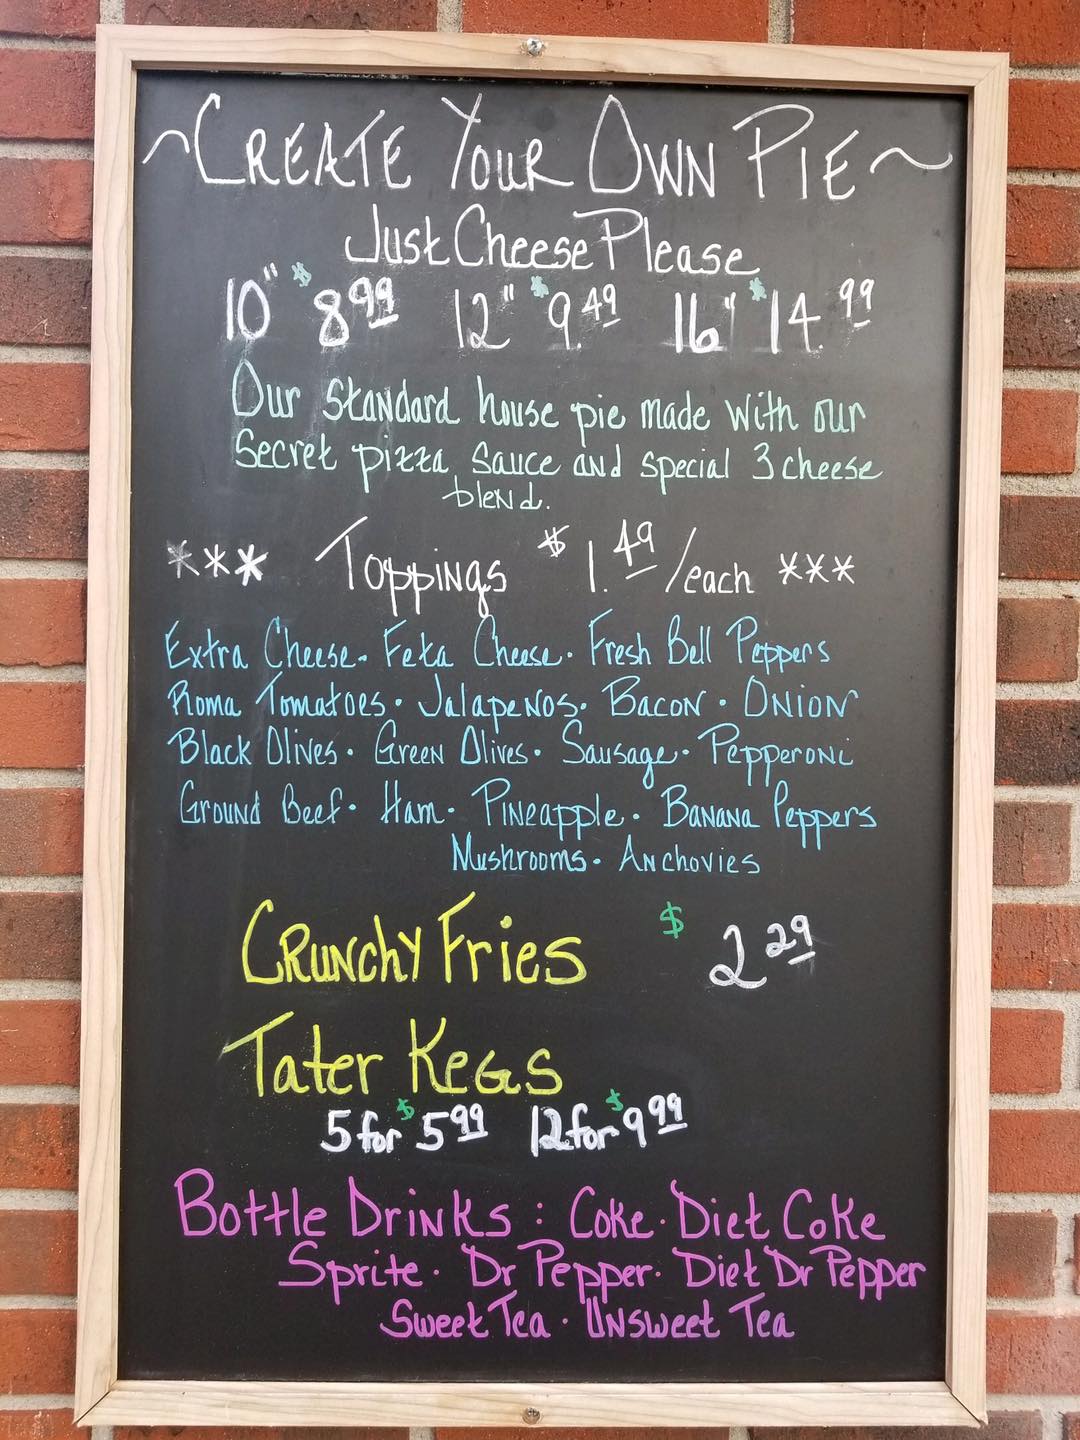 ~CREATE YOUR OWN PIE~
Just Cheese Please
10" $8.99 12" $9.49 16" $14.99
Our standard house pie made with our
secret pizza sauce and special 3 cheese
blend.
*** Toppings $1.49/each ***
Extra Cheese. Feta Cheese. Fresh Bell Peppers
Roma Tomatoes. Jalapenos. Bacon. Onion
Black Olives. Green Olives. Sausage. Pepperoni
Ground Beef. Ham. Pineapple. Banana Peppers
Mushrooms. Anchovies
Crunchy Fries $2.29
Tater Kegs
5 for $5.99 12 for $9.99
Bottle Drinks: Coke. Diet Coke
Sprite. Dr Pepper. Diet Dr Pepper
Sweet Tea. Unsweet Tea